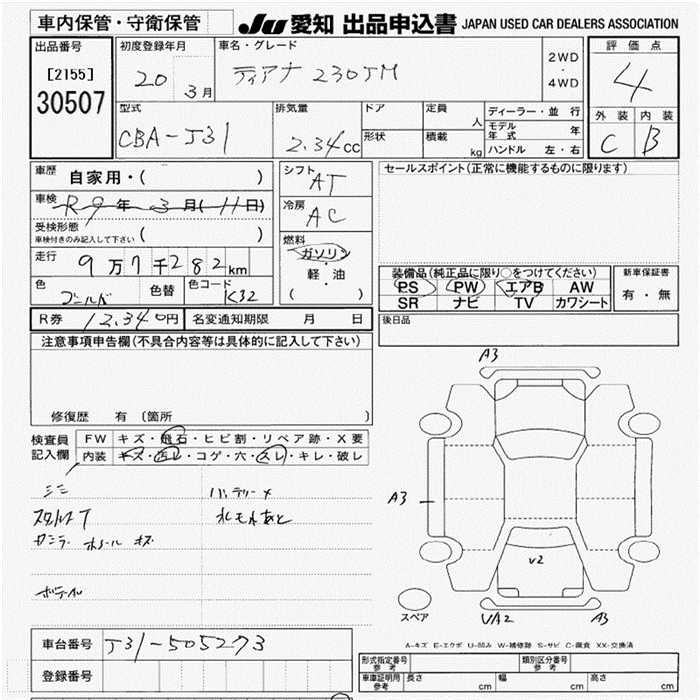 車内保管・守衛保管
JU 愛知 出品申込書 JAPAN USED CAR DEALERS ASSOCIATION
出品番号 [2155] 30507
初度登録年月 20 3月
車名・グレード ティアナ 230JM
2WD・4WD
評価点 4
外装 C 内装 B
型式 CBA-J31
排気量 2.34cc
ドア 形状
定員 人
積載 kg
ディーラー・並行
モデル年式 年
ハンドル 左・右
車歴 自家用・( )
車検 R9年3月(11日)
受検形態 車検付きのみ記入して下さい ( )
走行 9万7千282km
色 ゴールド 色替 色コード K32
シフト AT
冷房 AC
燃料 ガソリン・軽・油 ( )
セールスポイント(正常に機能するものに限ります)
装備品(純正品に限り○をつけてください)
PS PW エアB AW
SR ナビ TV カワシート
新車保証書 有・無
R券 12,340円 名変通知期限 月 日
後日品
注意事項申告欄(不具合内容等は具体的に記入して下さい)
修復歴 有 〔箇所
検査員記入欄
FW キズ・飛石・ヒビ割・リペア跡・X要
内装 キズ・汚レ・コゲ・穴・スレ・キレ・破レ
バッテリーメ
キズ
A3
A3
V2
スペア
UA2
A3
A-キズ E-エクボ U-凹み W-補修跡 S-サビ C-腐食 XX-交換済
車台番号 J31-505273
登録番号
形式指定番号 参考
類別区分番号 参考
車庫証明用 参考 長さ cm 幅 cm 高さ cm